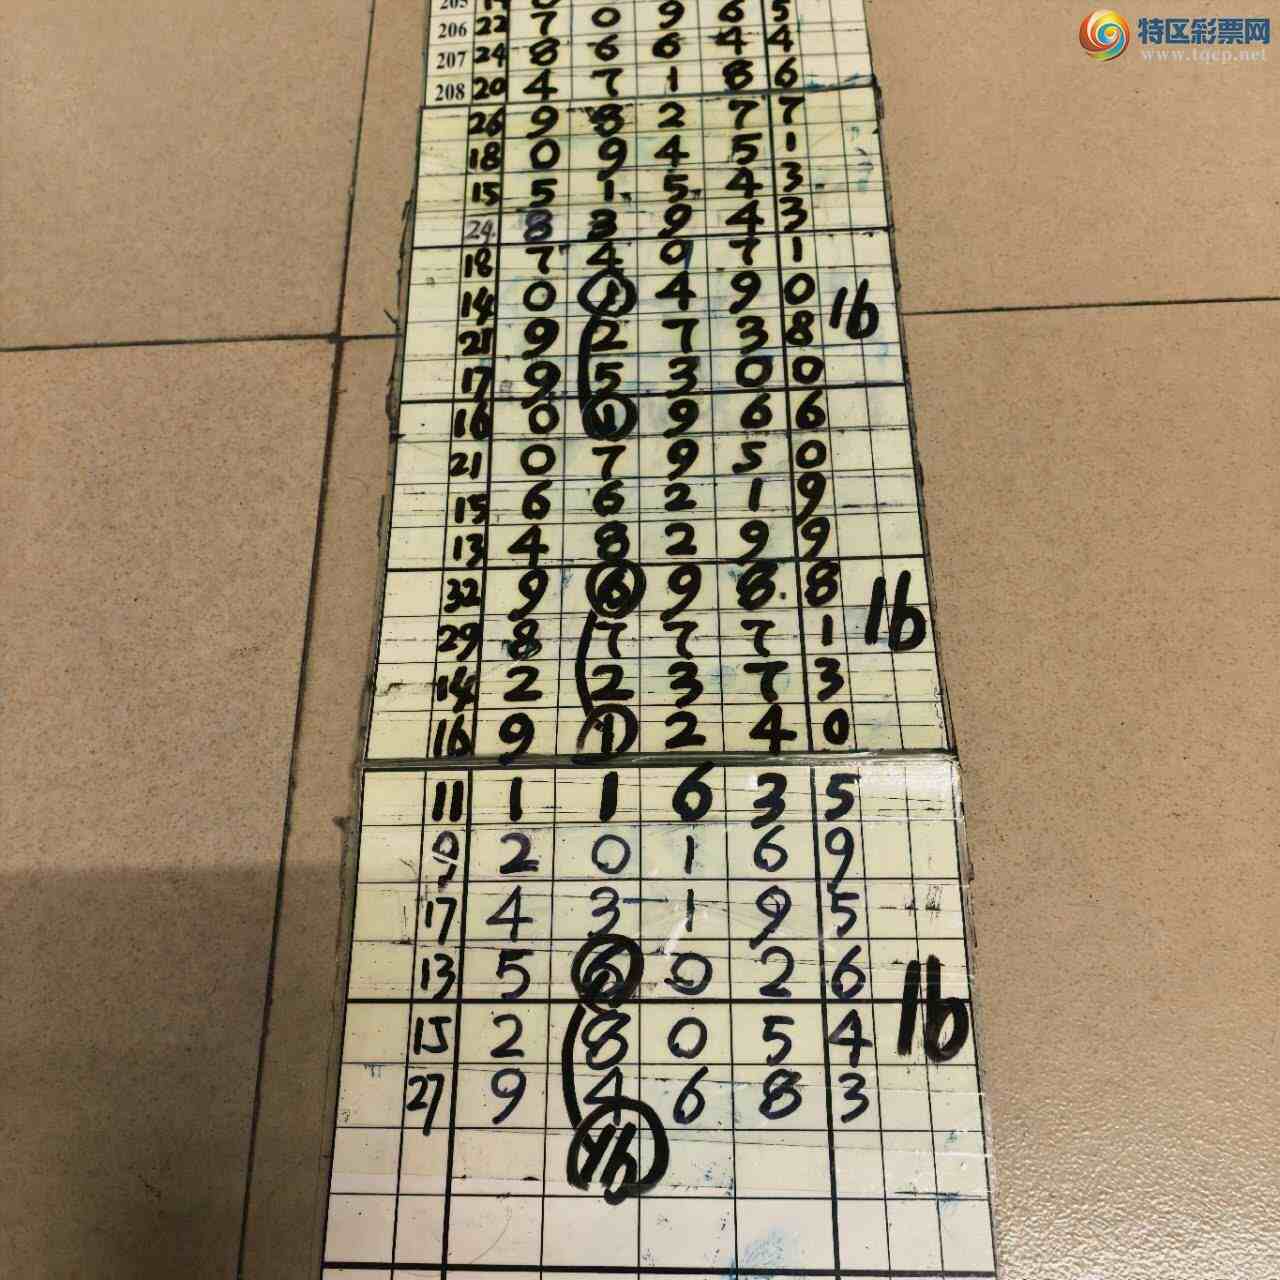 特区彩票网
www.tqcp.net
206 22 7 0 9 6 5
207 24 8 6 6 4 4
208 20 4 7 1 8 6
26 9 8 2 7 7
18 0 9 4 5 1
15 5 1 5 4 3
24 8 3 9 4 3
18 7 4 0 7 1
14 0 1 4 9 0
16
21 9 2 7 3 8
17 9 5 3 0 0
16 0 1 9 6 6
21 0 7 9 5 0
15 6 6 2 1 9
13 4 8 2 9 9
32 9 6 9 8 8
16
29 8 7 7 7 1
14 2 2 3 7 3
16 9 1 2 4 0
11 1 1 6 3 5
9 2 0 1 6 9
17 4 3 1 9 5
13 5 6 0 2 6
16
15 2 8 0 5 4
27 9 4 6 8 3